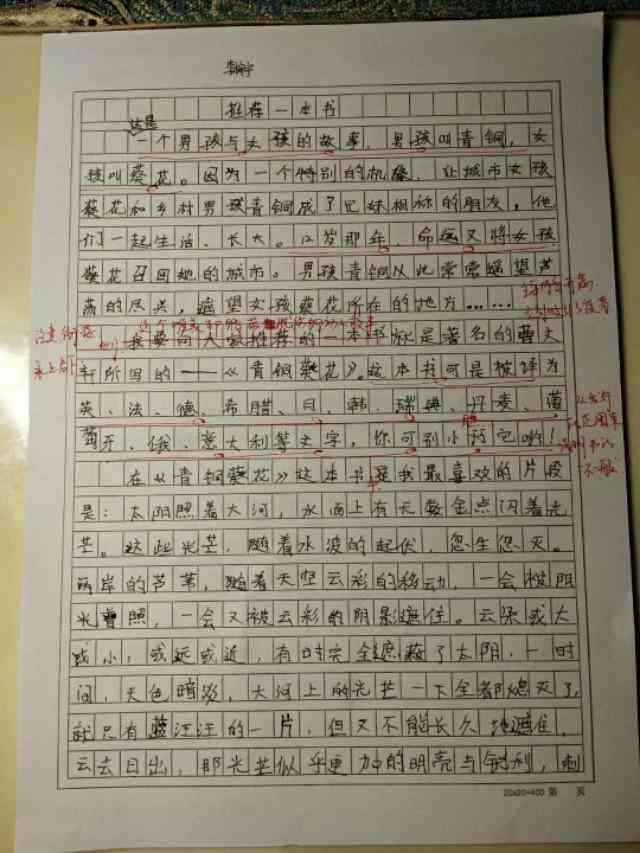 推荐一本书
这是
一个男孩与女孩的故事，男孩叫青铜，女
孩叫葵花。因为一个特别的机缘，让城市女孩
葵花和乡村男孩青铜成了兄妹相称的朋友，他
们一起生活、长大。12岁那年，命运又将女孩
葵花召回她的城市。男孩青铜从此常常遥望芦
荡的尽头，遥望女孩葵花所在的地方……
我要向大家推荐的一本书就是著名的曹文
轩所写的——《青铜葵花》。这本书可是被译为
英、法、德、希腊、日、韩、瑞典、丹麦、葡
萄牙、俄、意大利等文字，你可别小瞧它哟！
在《青铜葵花》这本书是我最喜欢的片段
是：太阳照着大河，水面上有无数金点闪着光
芒。这些光芒，随着水波的起伏，忽生忽灭。
两岸的芦苇，随着天空云彩的移动，一会被阳
光普照，一会又被云彩的阴影遮住。云朵或大
或小，或远或近，有时完全遮蔽了太阳，一时
间，天色暗淡，大河上的光芒一下全都熄灭了，
就只有蓝汪汪的一片，但又不能长久地遮住，
云去日出，那光芒似乎更加的明亮与锐利，刺
20x20=400 第 页